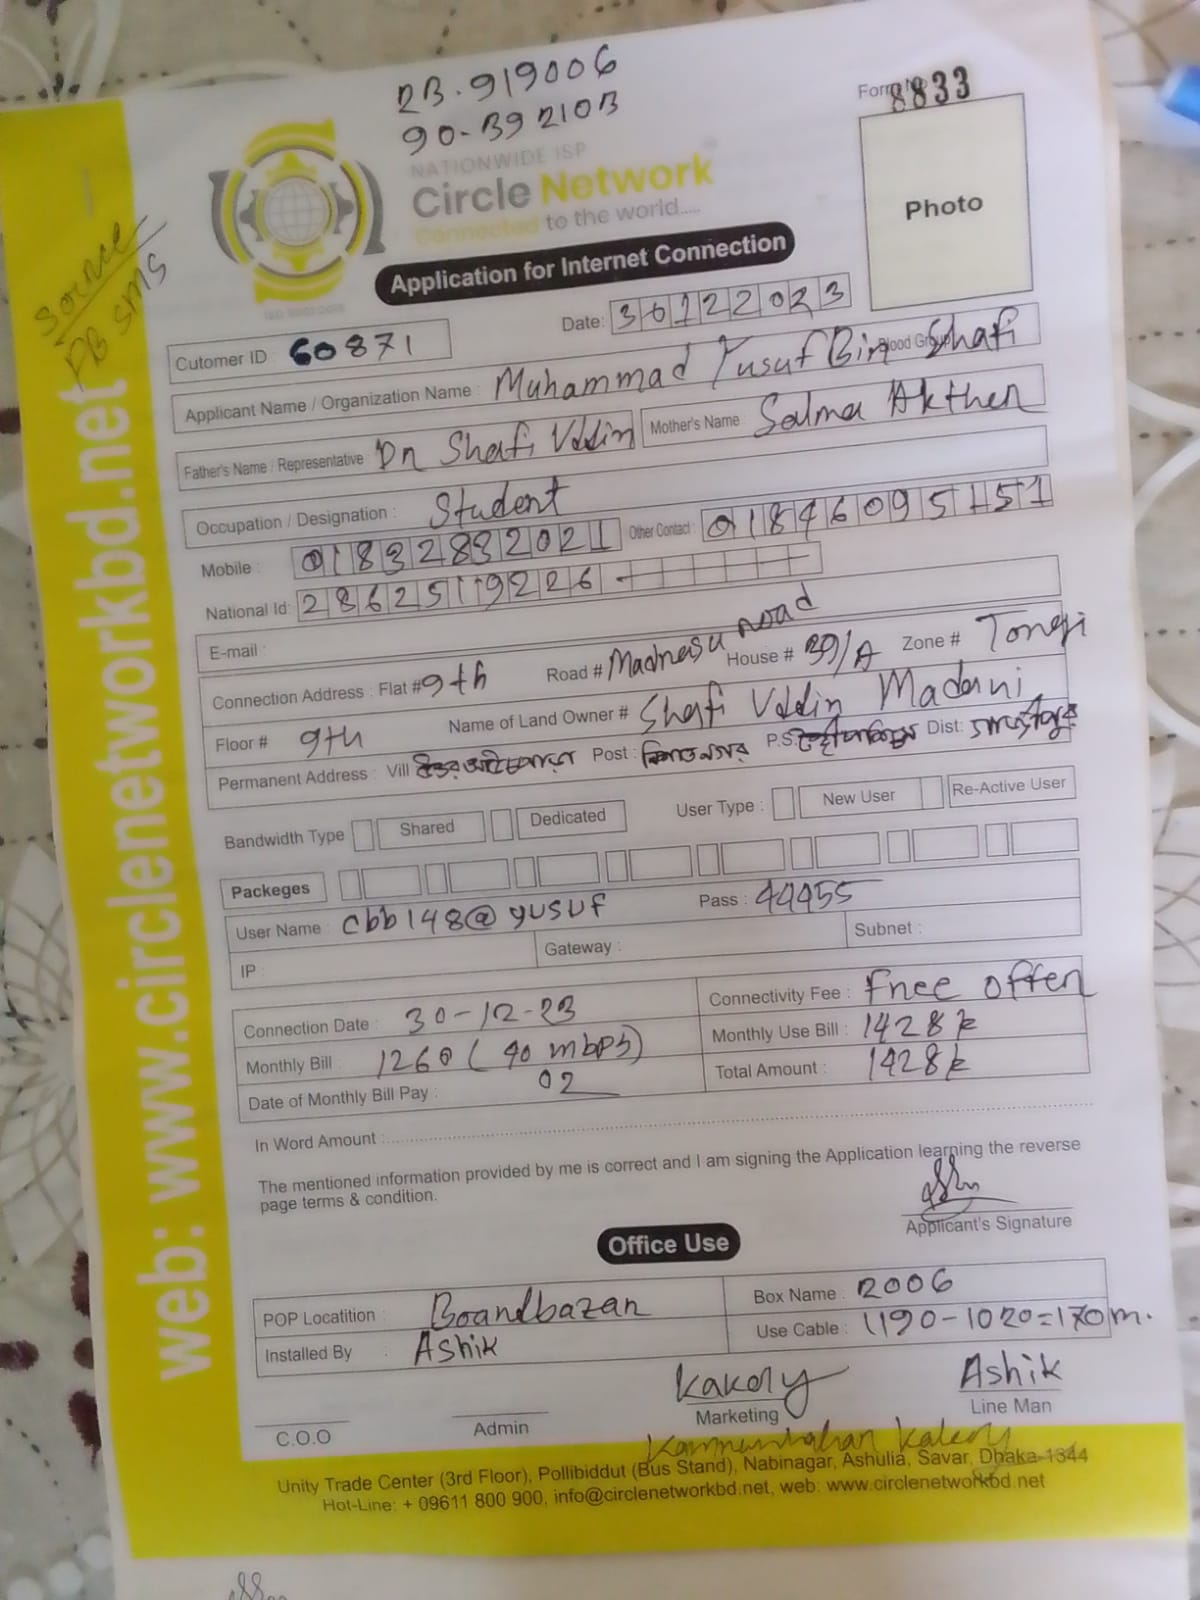 2B.919006
90-B9210B
Form No 8833
NATIONWIDE ISP
Circle Network
Connected to the world.....
Photo
Application for Internet Connection
Source
DB SMS
Date: 30122023
Cutomer ID 60871
Blood Group
Applicant Name / Organization Name : Muhammad Yusuf Bin Shafi
Father's Name / Representative Dr Shafi Uddin Mother's Name Salma Akther
Occupation / Designation : Student
Mobile : 01832832021 Other Contact : 01846095151
National Id: 2862519226
E-mail :
Connection Address : Flat # 9th Road # Madrasa road House # 39/A Zone # Tongi
Floor # 9th Name of Land Owner # Shafi Uddin Madani
Permanent Address : Vill Post : P.S. Dist:
Bandwidth Type Shared Dedicated User Type : New User Re-Active User
Packeges
User Name : cbb148@yusuf Pass : 44455
IP : Gateway : Subnet :
Connection Date : 30-12-23 Connectivity Fee : Free offer
Monthly Bill : 1260 ( 40 mbps) Monthly Use Bill : 1428k
Date of Monthly Bill Pay : 02 Total Amount : 1428k
In Word Amount :
The mentioned information provided by me is correct and I am signing the Application learning the reverse
page terms & condition.
Applicant's Signature
Office Use
POP Locatition : Boardbazar Box Name : 2006
Installed By : Ashik Use Cable : 1190-1020=170m.
Kakoly Ashik
C.O.O Admin Marketing Line Man
Unity Trade Center (3rd Floor), Pollibiddut (Bus Stand), Nabinagar, Ashulia, Savar, Dhaka-1344
Hot-Line: + 09611 800 900, info@circlenetworkbd.net, web: www.circlenetworkbd.net
web: www.circlenetworkbd.net